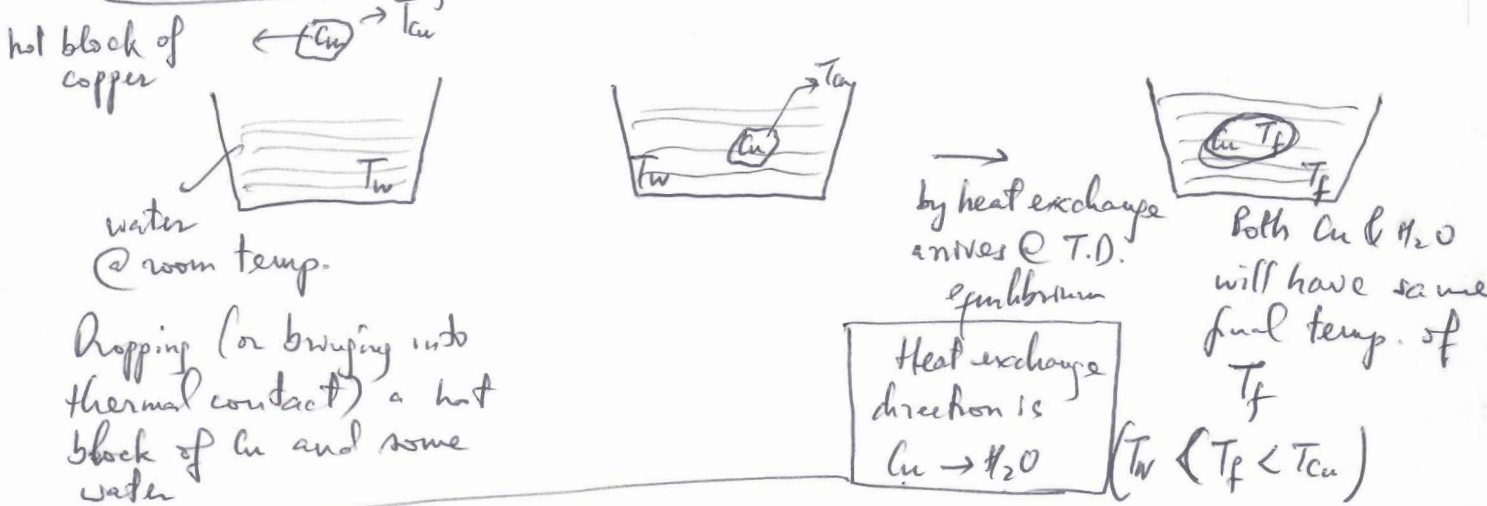 hot block of
copper
Cu
T_Cu
T_w
water
@ room temp.
Dropping (or bringing into
thermal contact) a hot
block of Cu and some
water
T_Cu
Cu
T_w
by heat exchange
arrives @ T.D.
equilibrium
Heat exchange
direction is
Cu → H₂O
Cu T_f
T_f
Both Cu & H₂O
will have same
final temp. of
T_f
(T_w < T_f < T_Cu)